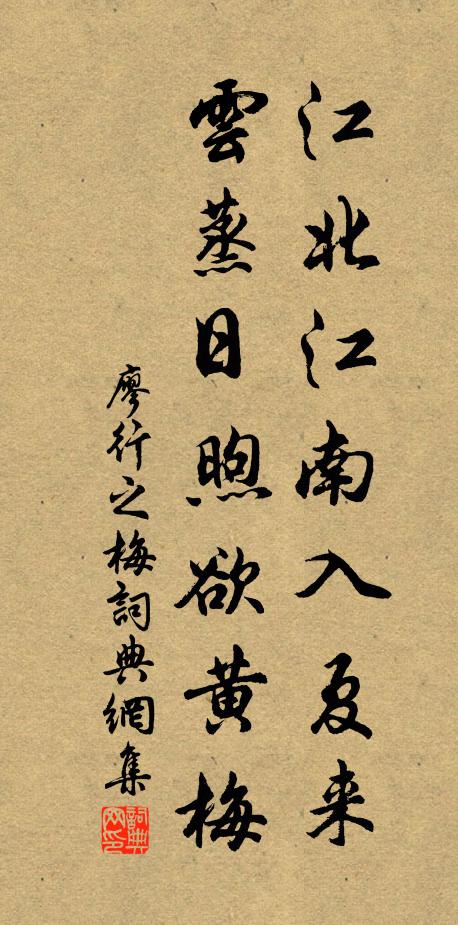 江北江南入夏来
雲蒸日煦欲黄梅
廖行之梅詞典網集
詞典網印